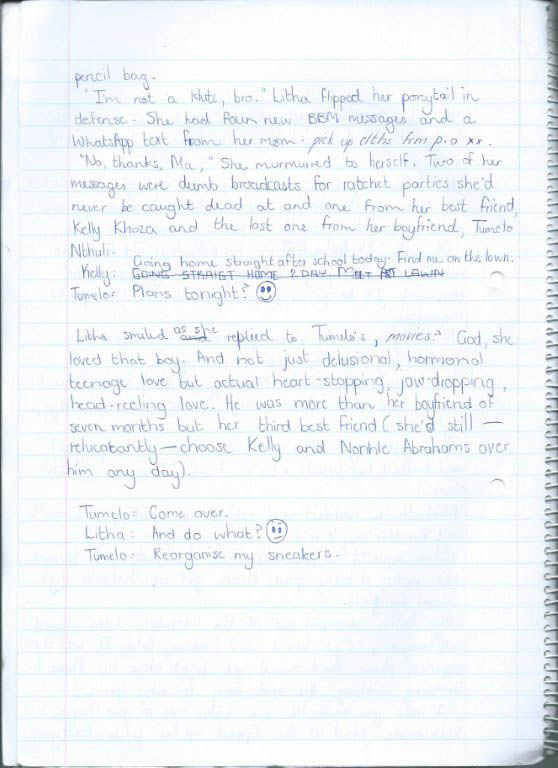 pencil bag.
"I'm not a klutz, bro." Litha flipped her ponytail in
defense. She had four new BBM messages and a
WhatsApp text from her mom: pick up clths frm p.o xx.
"No, thanks, Ma," She murmured to herself. Two of her
messages were dumb broadcasts for ratchet parties she'd
never be caught dead at and one from her best friend,
Kelly Khoza and the last one from her boyfriend, Tumelo
Nthuli.
Going home straight after school today. Find me on the lawn.
Kelly: GOING STRAIGT HOME 2DAY. MEET AT LAWN
Tumelo: Plans tonight? ☺
Litha smiled as she and replied to Tumelo's, movies? God, she
loved that boy. And not just delusional, hormonal
teenage love but actual heart-stopping, jaw-dropping,
head-reeling love. He was more than her boyfriend of
seven months but her third best friend (she'd still —
relucatantly — choose Kelly and Nonhle Abrahams over
him any day).
Tumelo: Come over.
Litha: And do what? 😐
Tumelo: Reorganise my sneakers.